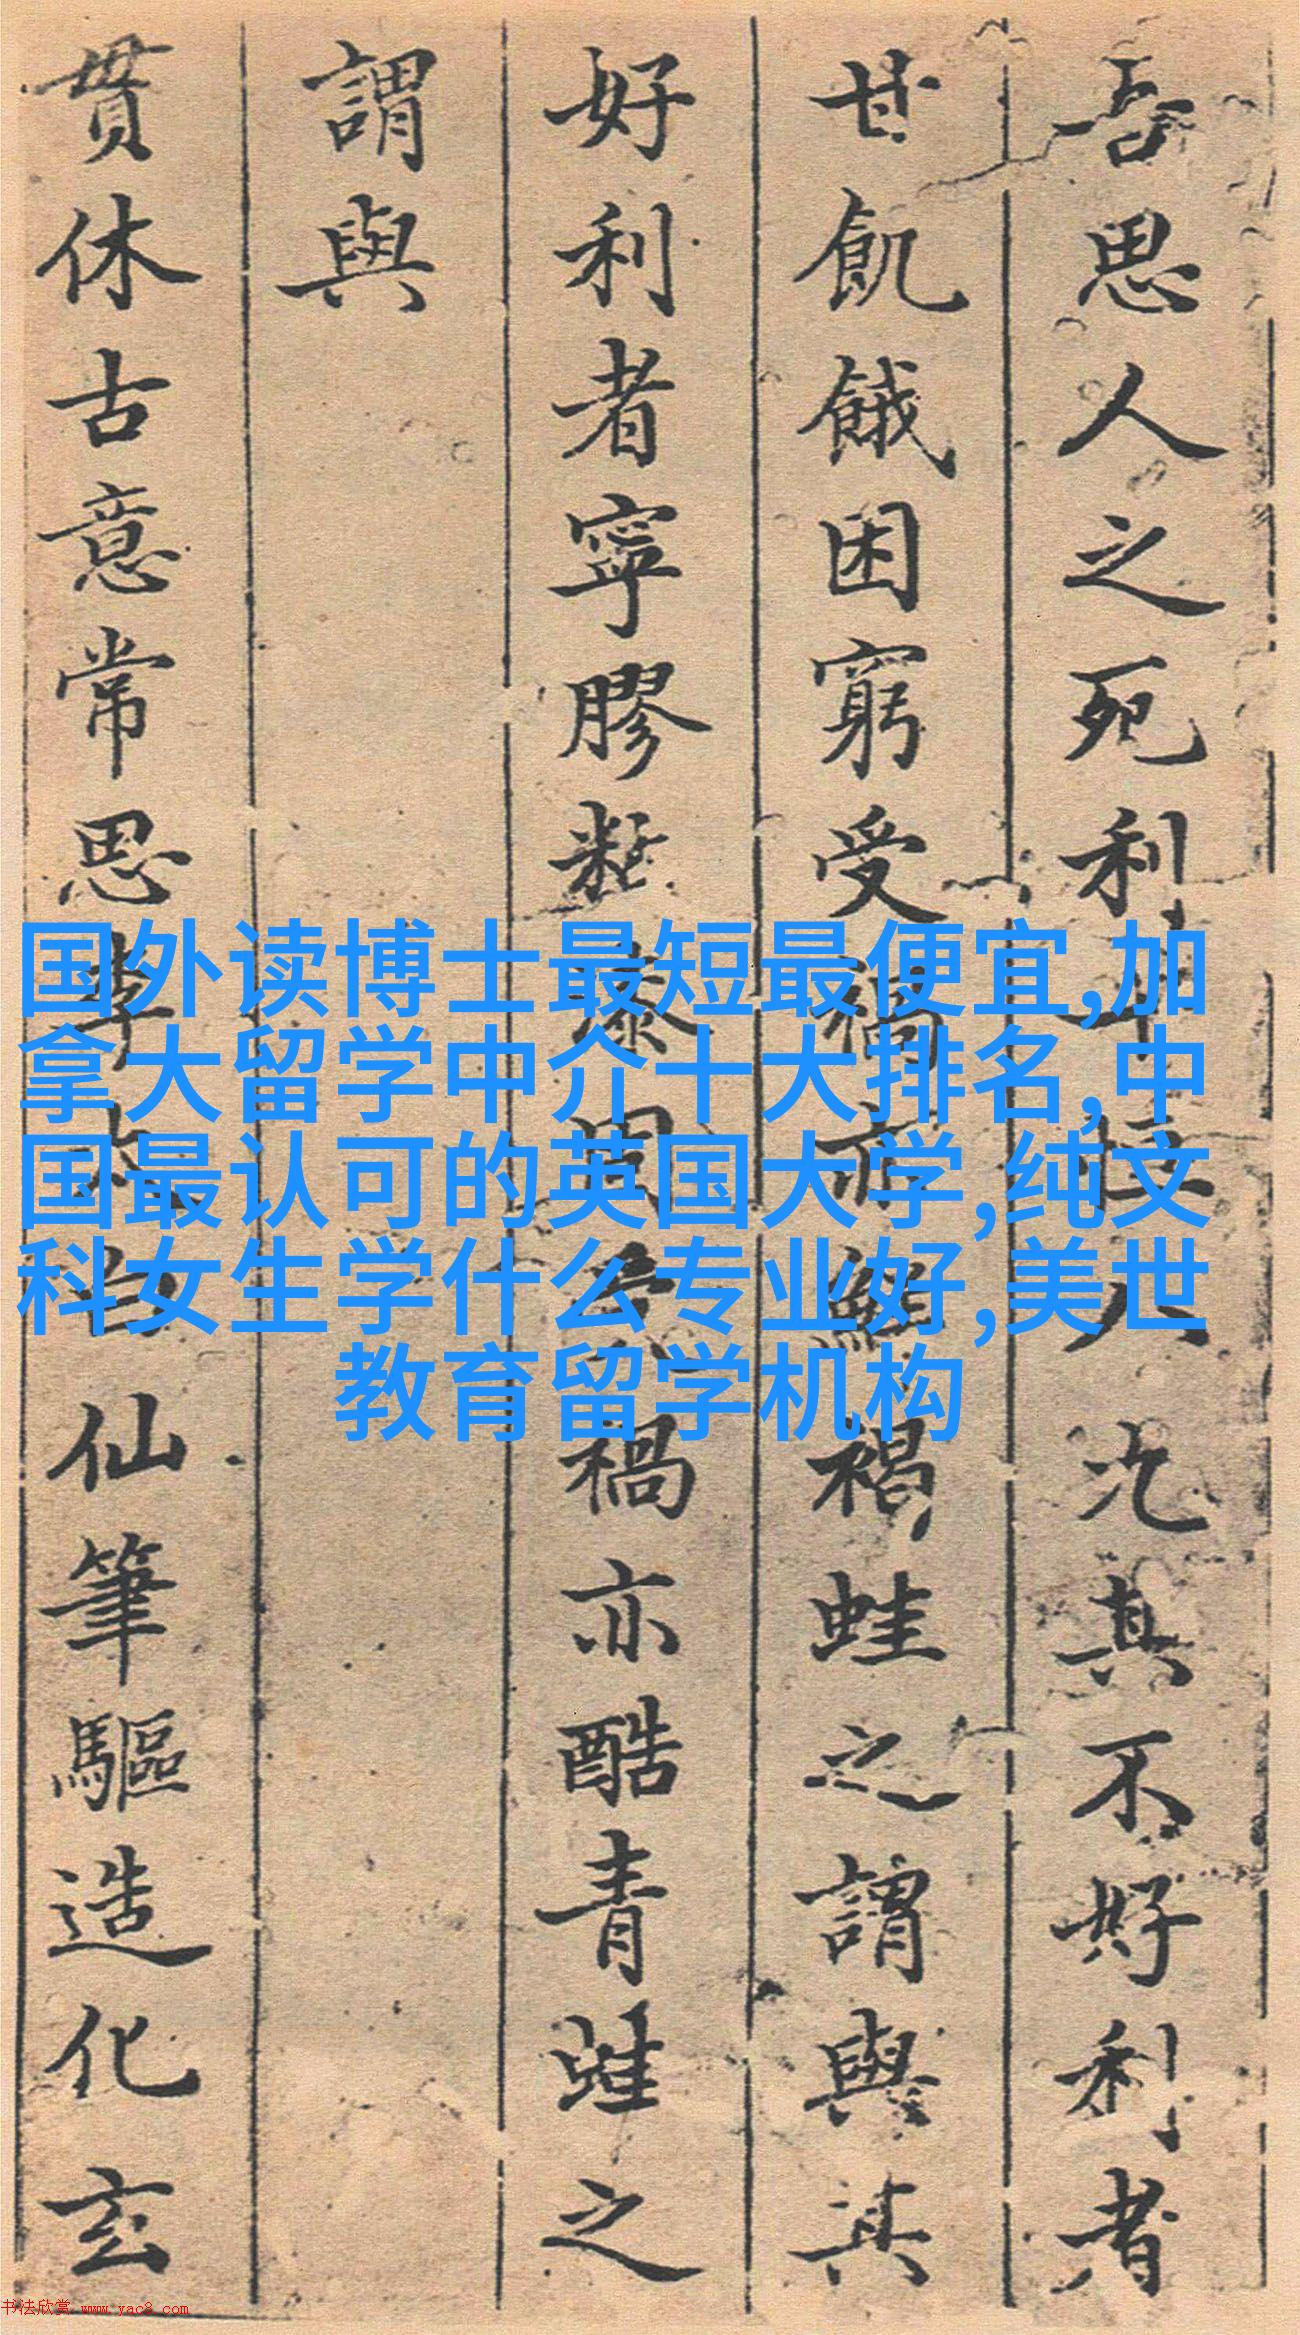 吾思人之死利
人况其不好利者
甘飢餓困窮受禍亦
褐蛙之謂與其
好利者寧膠
禍亦酷青蛙之
謂與
貫休古意常思李太白
仙筆驅造化玄
国外读博士最短最便宜,加
拿大留学中介十大排名,中
国最认可的英国大学,纯文
科女生学什么专业好,美世
教育留学机构
书法欣赏 www.yac8.com